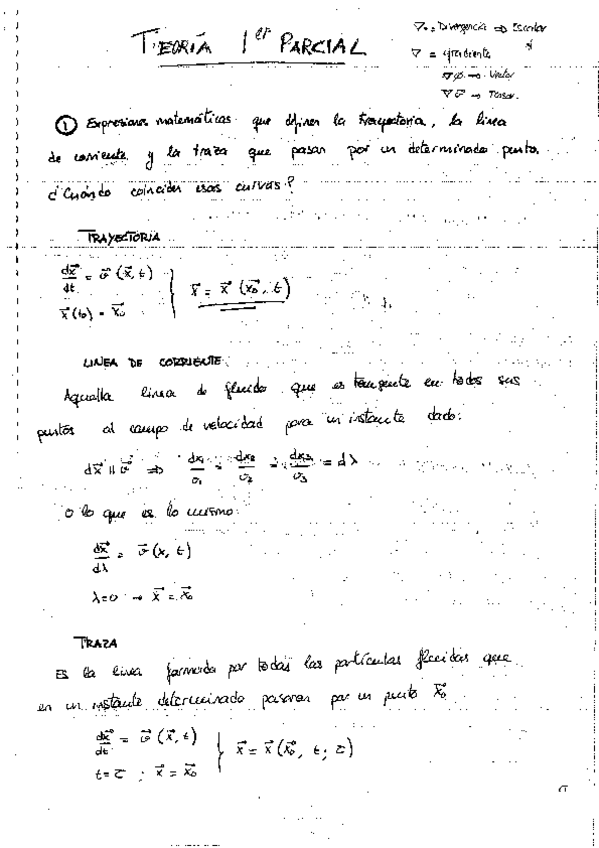 TEORÍA 1er PARCIAL
∇· = Divergencia ⇒ Escalar
∇ = gradiente
∇φ → Vector
∇v⃗ → Tensor
① Expresiones matemáticas que definen la trayectoria, la linea
de corriente y la traza que pasan por un determinado punto.
¿Cuándo coinciden esas curvas?
TRAYECTORIA
dx⃗/dt = v⃗ (x⃗, t)
x⃗(t₀) = x⃗₀
x⃗ = x⃗ (x⃗₀, t)
LINEA DE CORRIENTE:
Aquella linea de fluido que es tangente en todos sus
puntos al campo de velocidad para un instante dado:
dx⃗ ∥ v⃗ ⇒ dx₁/v₁ = dx₂/v₂ = dx₃/v₃ = dλ
o lo que es lo mismo:
dx⃗/dλ = v⃗ (x, t)
λ=0 → x⃗ = x⃗₀
TRAZA
Es la linea formada por todas las partículas fluidas que
en un instante determinado pasaron por un punto x⃗₀
dx⃗/dt = v⃗ (x⃗, t)
t = τ ; x⃗ = x⃗₀
x⃗ = x⃗(x⃗₀, t; τ)